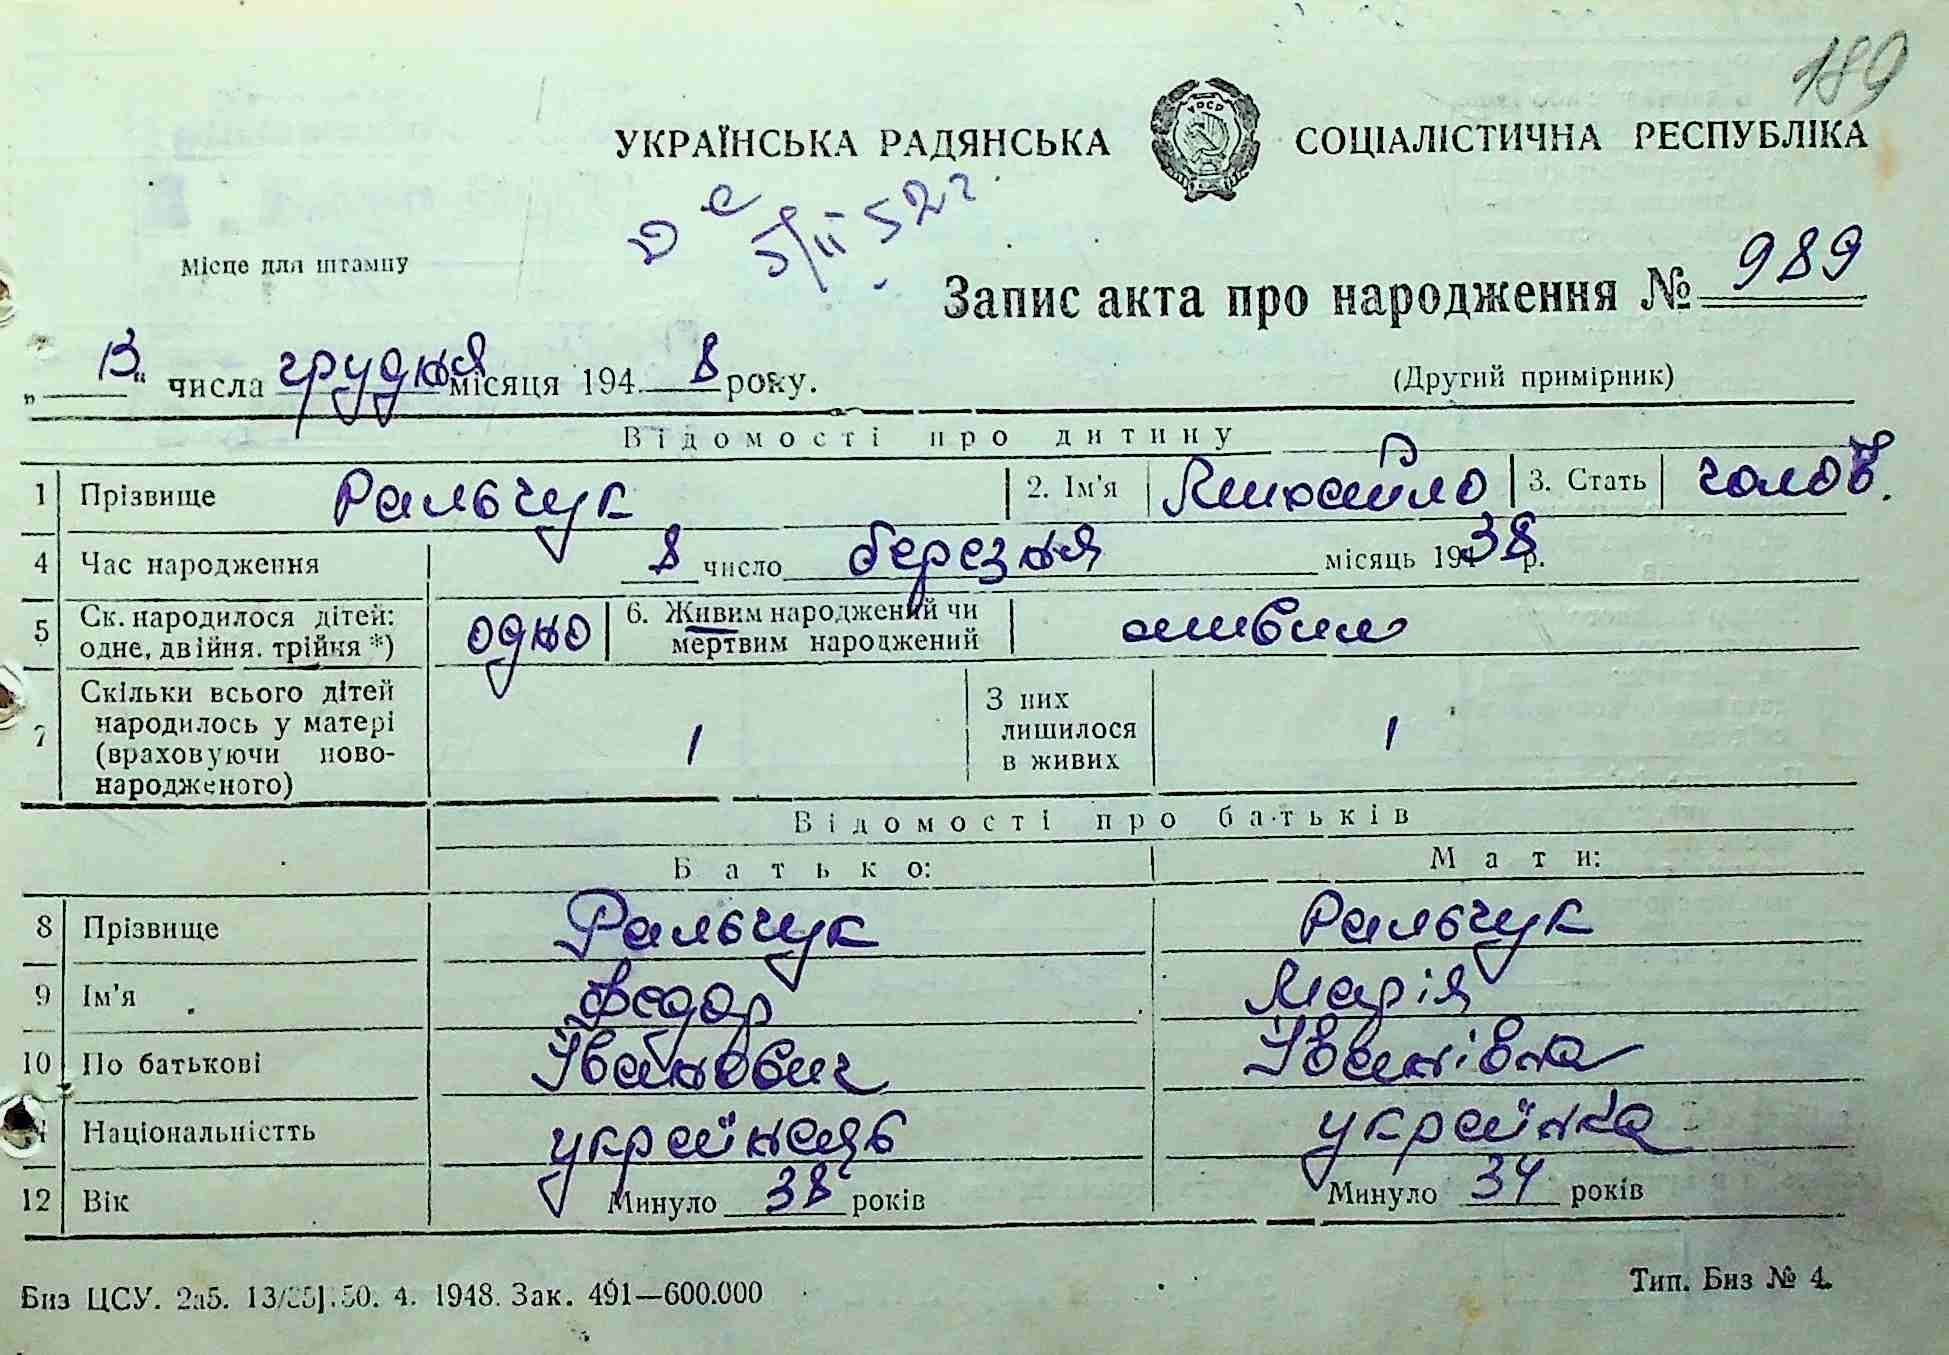 189
УКРАЇНСЬКА РАДЯНСЬКА СОЦІАЛІСТИЧНА РЕСПУБЛІКА
УРСР
5/II 52 г
Місце для штампу
Запис акта про народження № 989
„13“ числа грудня місяця 1948 року.
(Другий примірник)
Відомості про дитину
1 Прізвище Ральчук 2. Ім'я Михайло 3. Стать чолов.
4 Час народження 8 число березня місяць 1938 р.
5 Ск. народилося дітей: одне, двійня, трійня *) одно 6. Живим народжений чи мертвим народжений живим
7 Скільки всього дітей народилось у матері (враховуючи ново-народженого) 1 З них лишилося в живих 1
Відомості про батьків
Батько: Мати:
8 Прізвище Ральчук Ральчук
9 Ім'я Федор Марія
10 По батькові Іванович Іванівна
11 Національністть українець українка
12 Вік Минуло 38 років Минуло 34 років
Биз ЦСУ. 2а5. 50. 4. 1948. Зак. 491—600.000
Тип. Биз № 4.